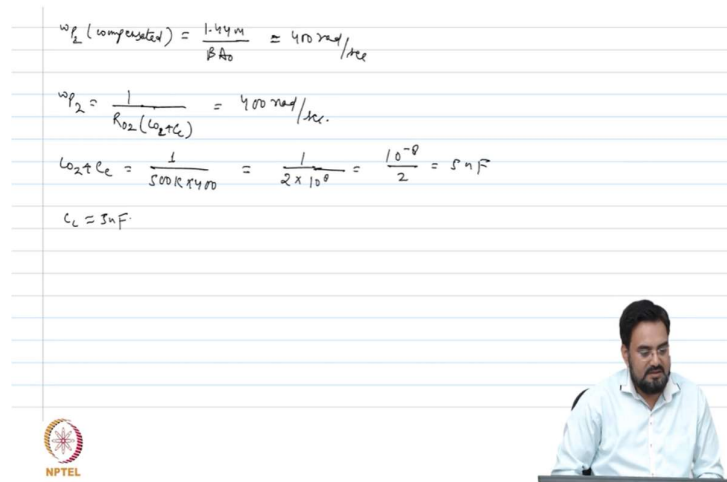 ωp₂ (compensated) = 1.44M / βA₀ ≃ 400 rad/sec
ωp₂ = 1 / R₀₂(C₀₂+Cc) = 400 rad/sec.
C₀₂+Cc = 1 / 500K×400 = 1 / 2×10⁸ = 10⁻⁸ / 2 = 5nF
Cc = 5nF.
NPTEL